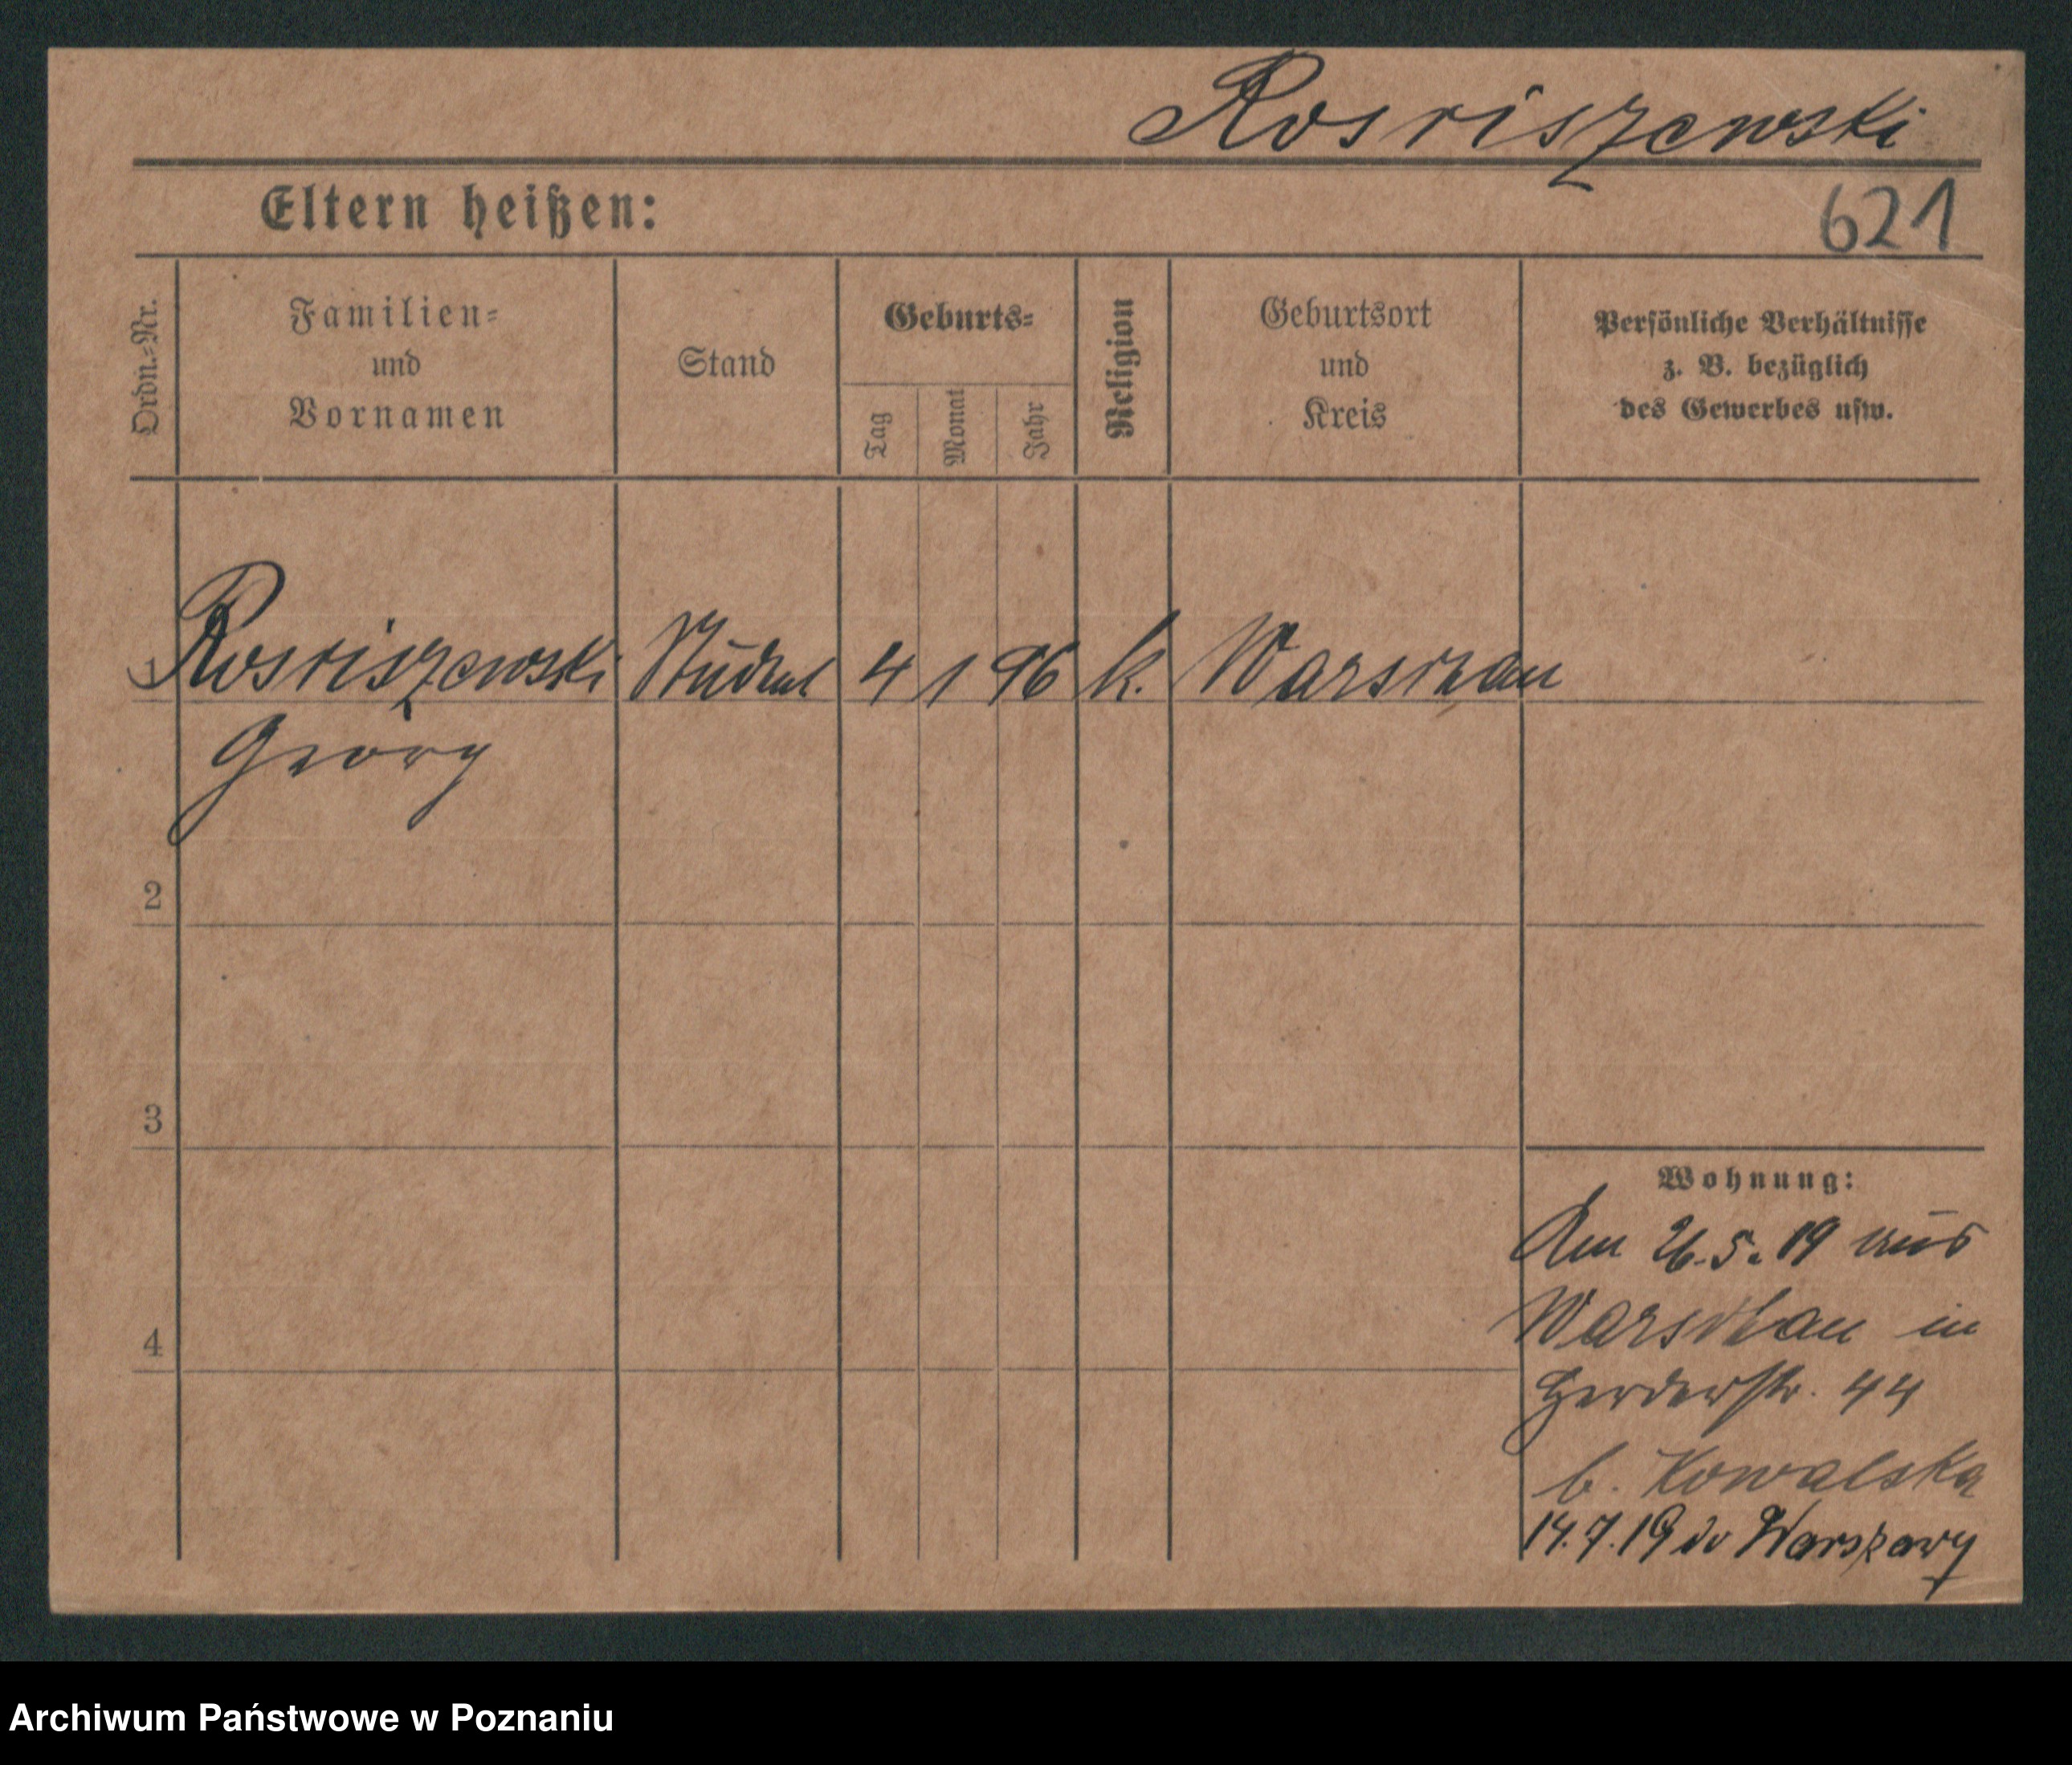 Rosciszewski
Eltern heißen:
621
Ordn.-Nr.
Familien-
und
Vornamen
Stand
Geburts-
Tag
Monat
Jahr
Religion
Geburtsort
und
Kreis
Persönliche Verhältnisse
z. B. bezüglich
des Gewerbes usw.
1 Rosciszewski Student 4 1 96 k. Warschau
Georg
2
3
4
Wohnung:
Am 26.5.19 aus
Warschau in
Herderstr. 44
b. Kowalska
14.7.19 do Warszawy
Archiwum Państwowe w Poznaniu